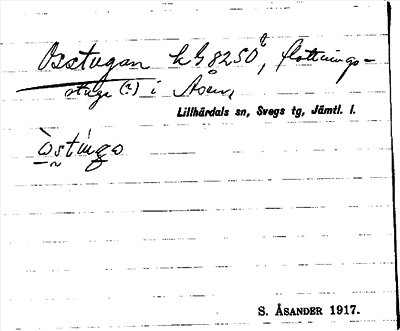 Osstugan k 48250, flottnings-
stuga (?) i Åsen,
Lillhärdals sn, Svegs tg, Jämtl. l.
òstu̇gȯ
S. ÅSANDER 1917.